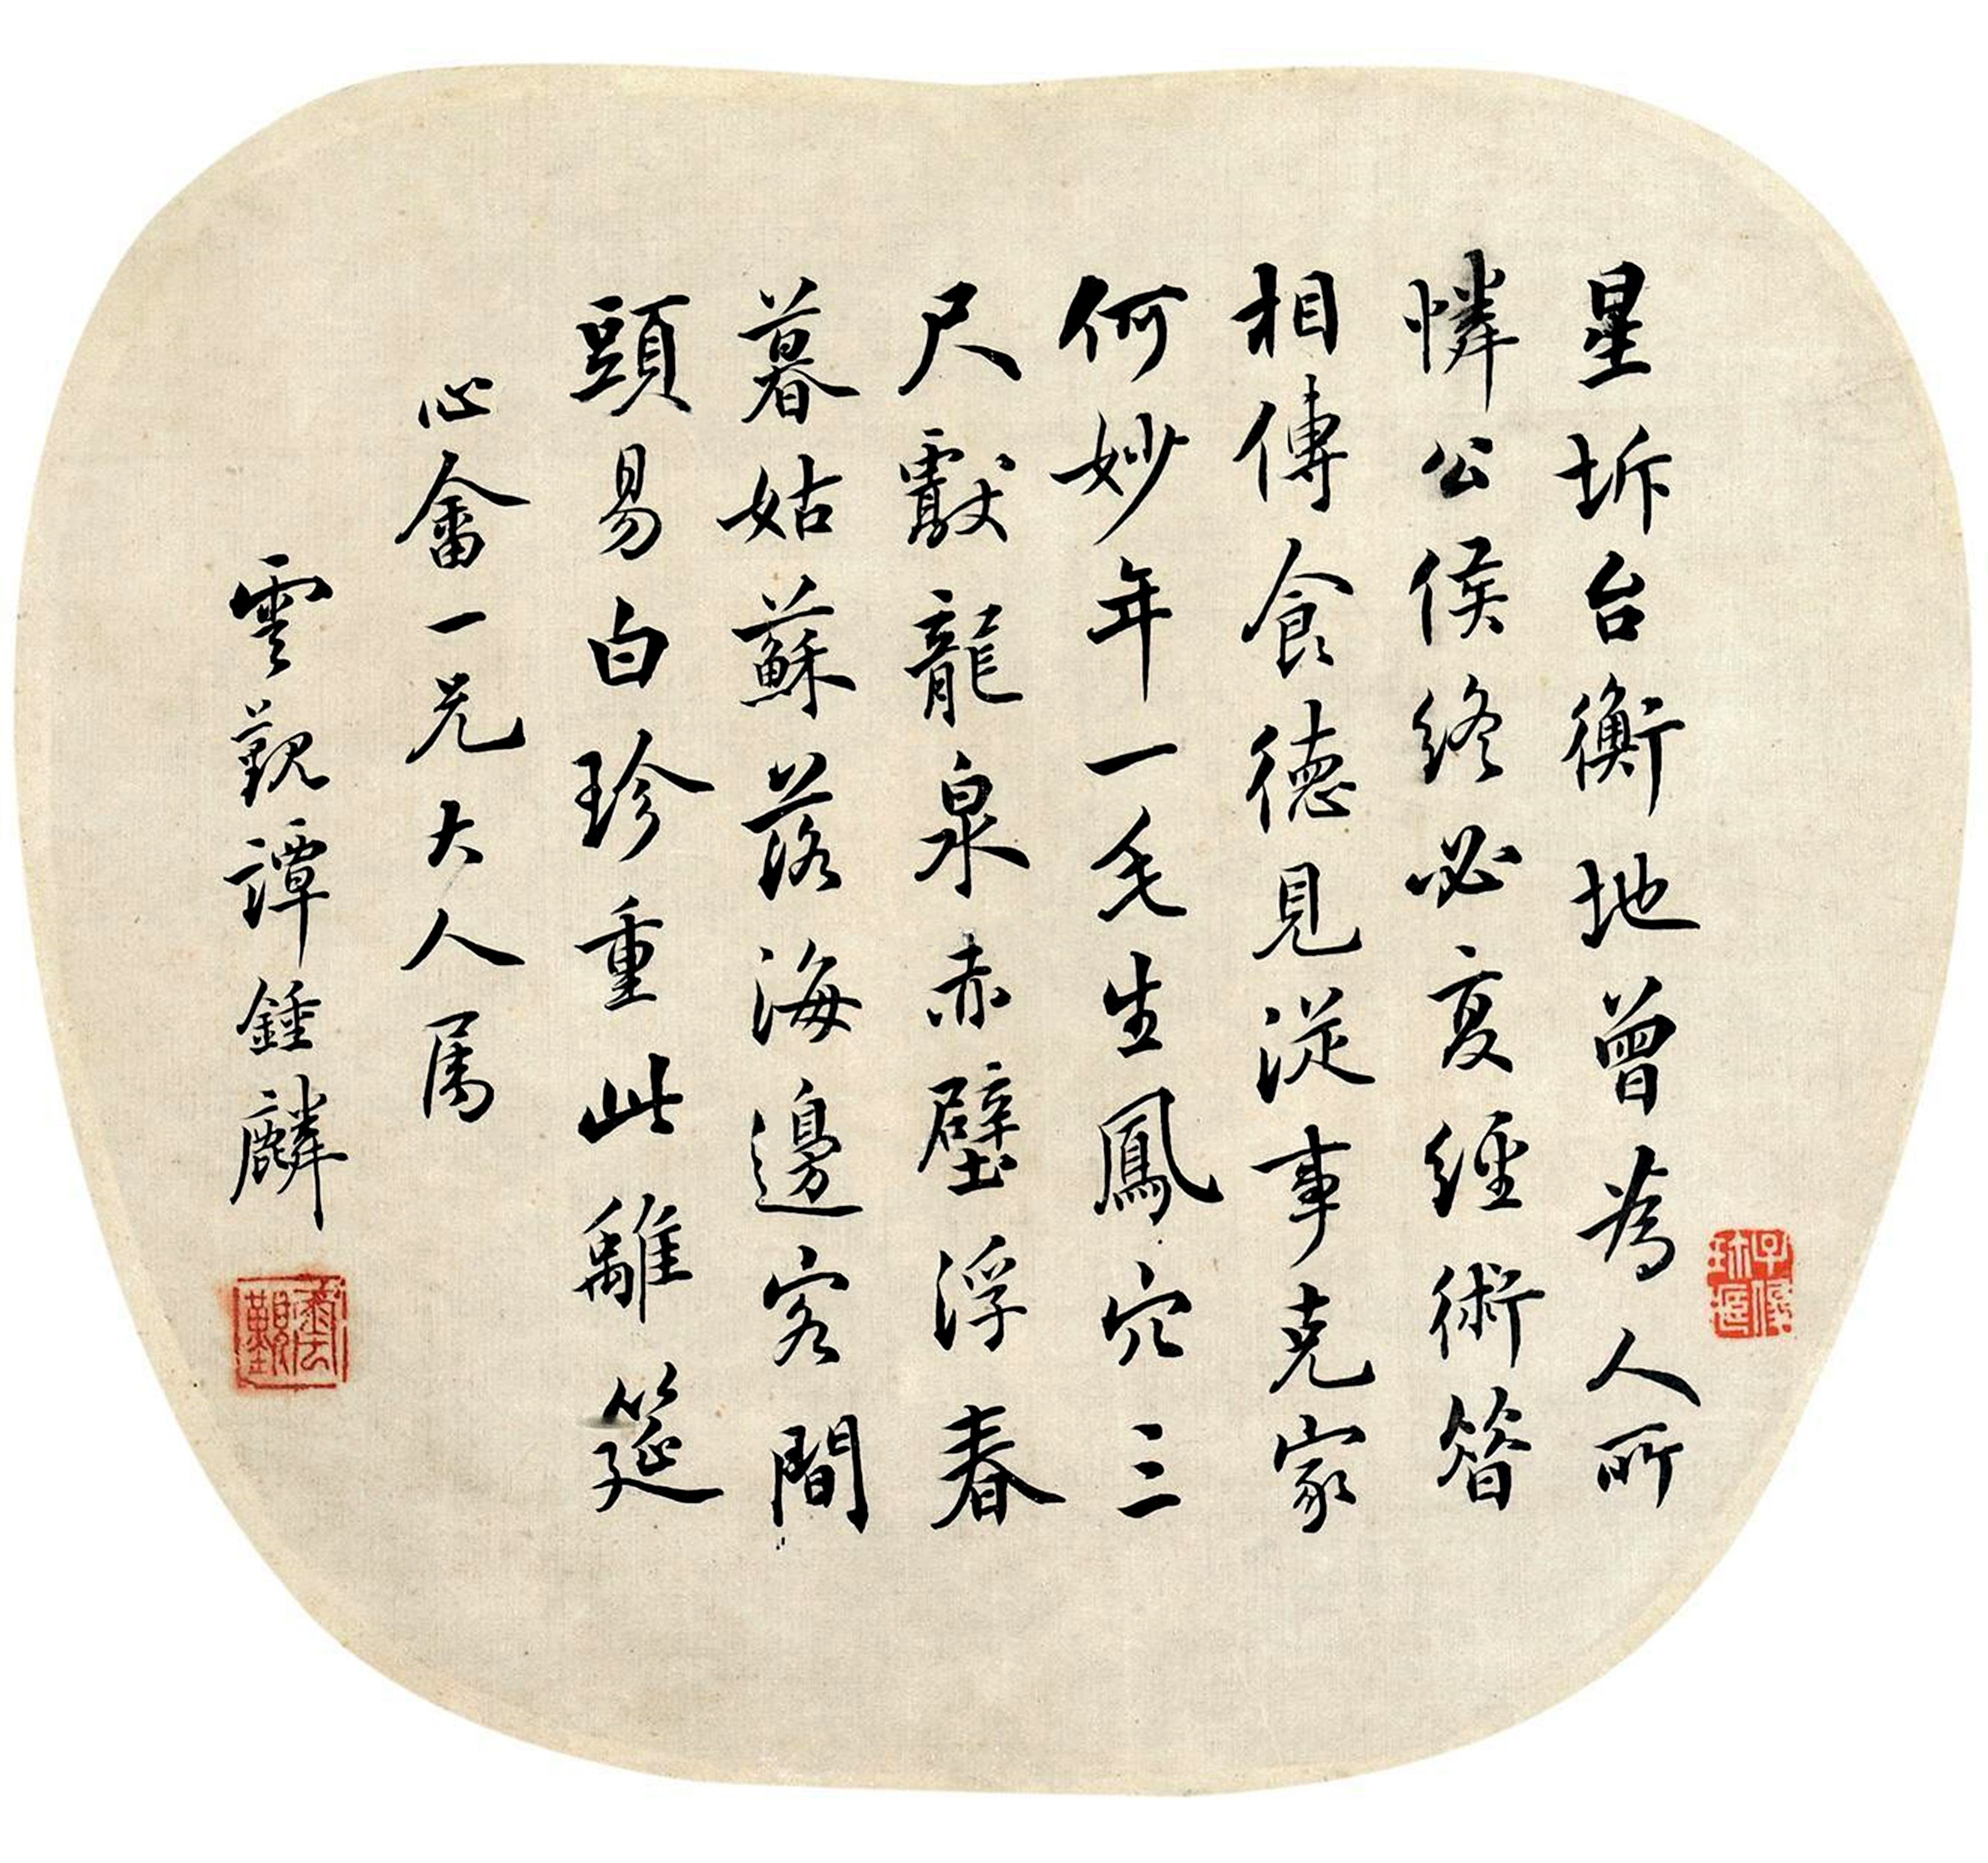 星坼台衡地曾為人所
憐公侯終必復經術昝
相傳食德見從事克家
何妙年一毛生鳳穴三
尺獻龍泉赤壁浮春
暮姑蘇落海邊客間
頭易白珍重此離筵
心畬一兄大人属
雲覲譚鍾麟